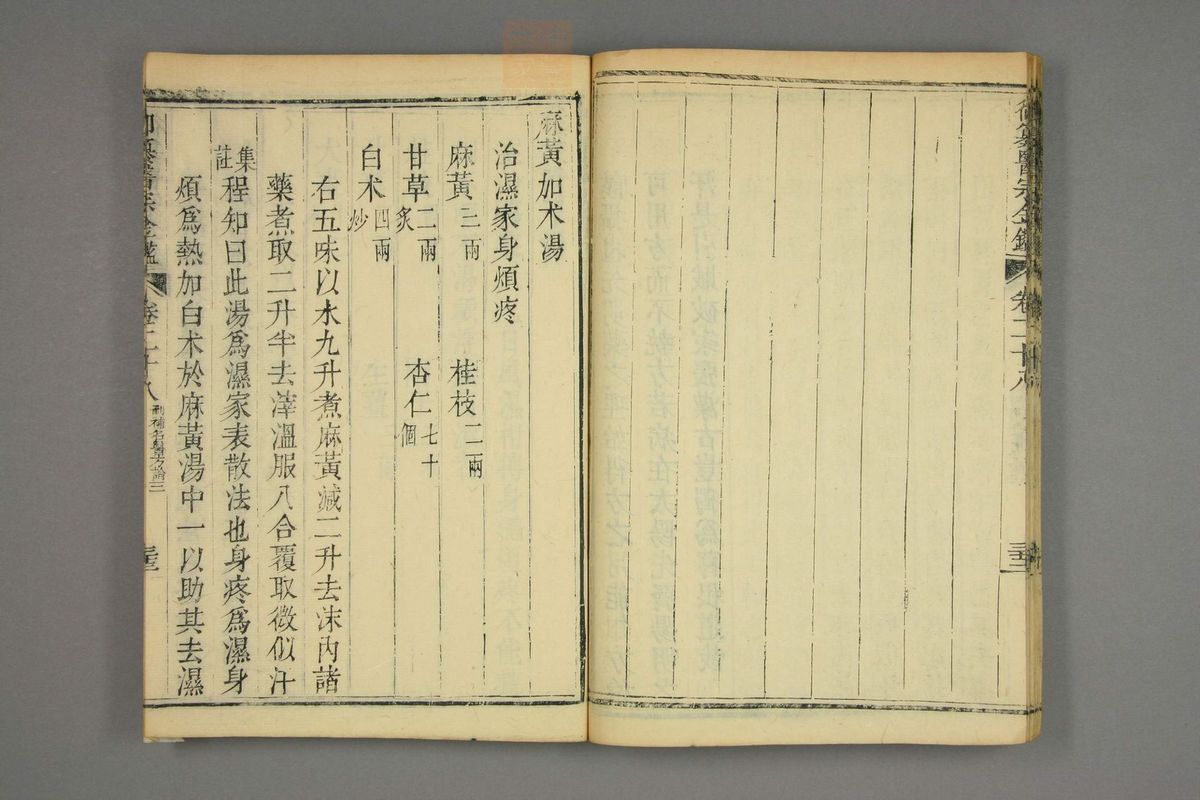 御纂醫宗金鑑 卷二十八
麻黃加术湯
治濕家身煩疼
麻黃三兩 桂枝二兩
甘草二兩炙 杏仁七十個
白术四兩炒
右五味以水九升煮麻黃減二升去沫內諸
藥煮取二升半去滓溫服八合覆取微似汗
集註程知曰此湯爲濕家表散法也身疼爲濕身
煩爲熱加白术於麻黃湯中一以助其去濕
御纂醫宗金鑑 卷二十八 刪補名醫方論三